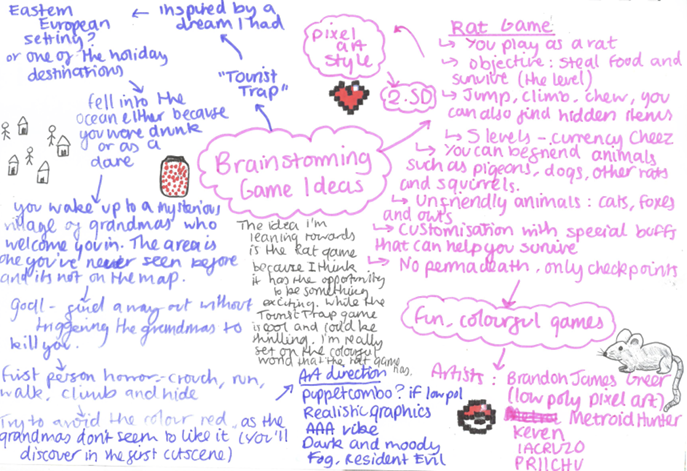 Brainstorming
Game Ideas
"Tourist
Trap"
inspired by a
dream I had
Eastern
European
setting?
or one of the holiday
destinations
fell into the
ocean either because
you were drunk
or as a
dare
you wake up to a mysterious
village of grandmas who
welcome you in. The area is
one you've never seen before
and its not on the map.
Goal - find a way out without
triggering the grandmas to
kill you.
First person horror - crouch, run,
walk, climb and hide
Try to avoid the colour red, as the
grandmas don't seem to like it (you'll
discover in the first cutscene)
Art direction
puppetcombo? if low pol
Realistic graphics
AAA vibe
Dark and moody
Fog, Resident Evil
The idea I'm
leaning towards
is the Rat game
because I think
it has the opportunity
to be something
exciting. While the
Tourist Trap game
is cool and could be
thrilling. I'm really
set on the colourful
world that the rat game
has.
pixel
art
style
2.5D
Rat Game
You play as a rat
objective: steal food and
survive (the level)
Jump, climb, chew, you
can also find hidden items
5 levels - currency Cheez
You can befriend animals
such as pigeons, dogs, other rats
and squirrels.
Unfriendly animals: cats, foxes
and owls
Customisation with special buffs
that can help you survive
No permadeath, only checkpoints
Fun, colourful games
Artists: Brandon James Greer
(low poly pixel art)
Metroid Hunter
Keven
IACRUZO
PRIICHU